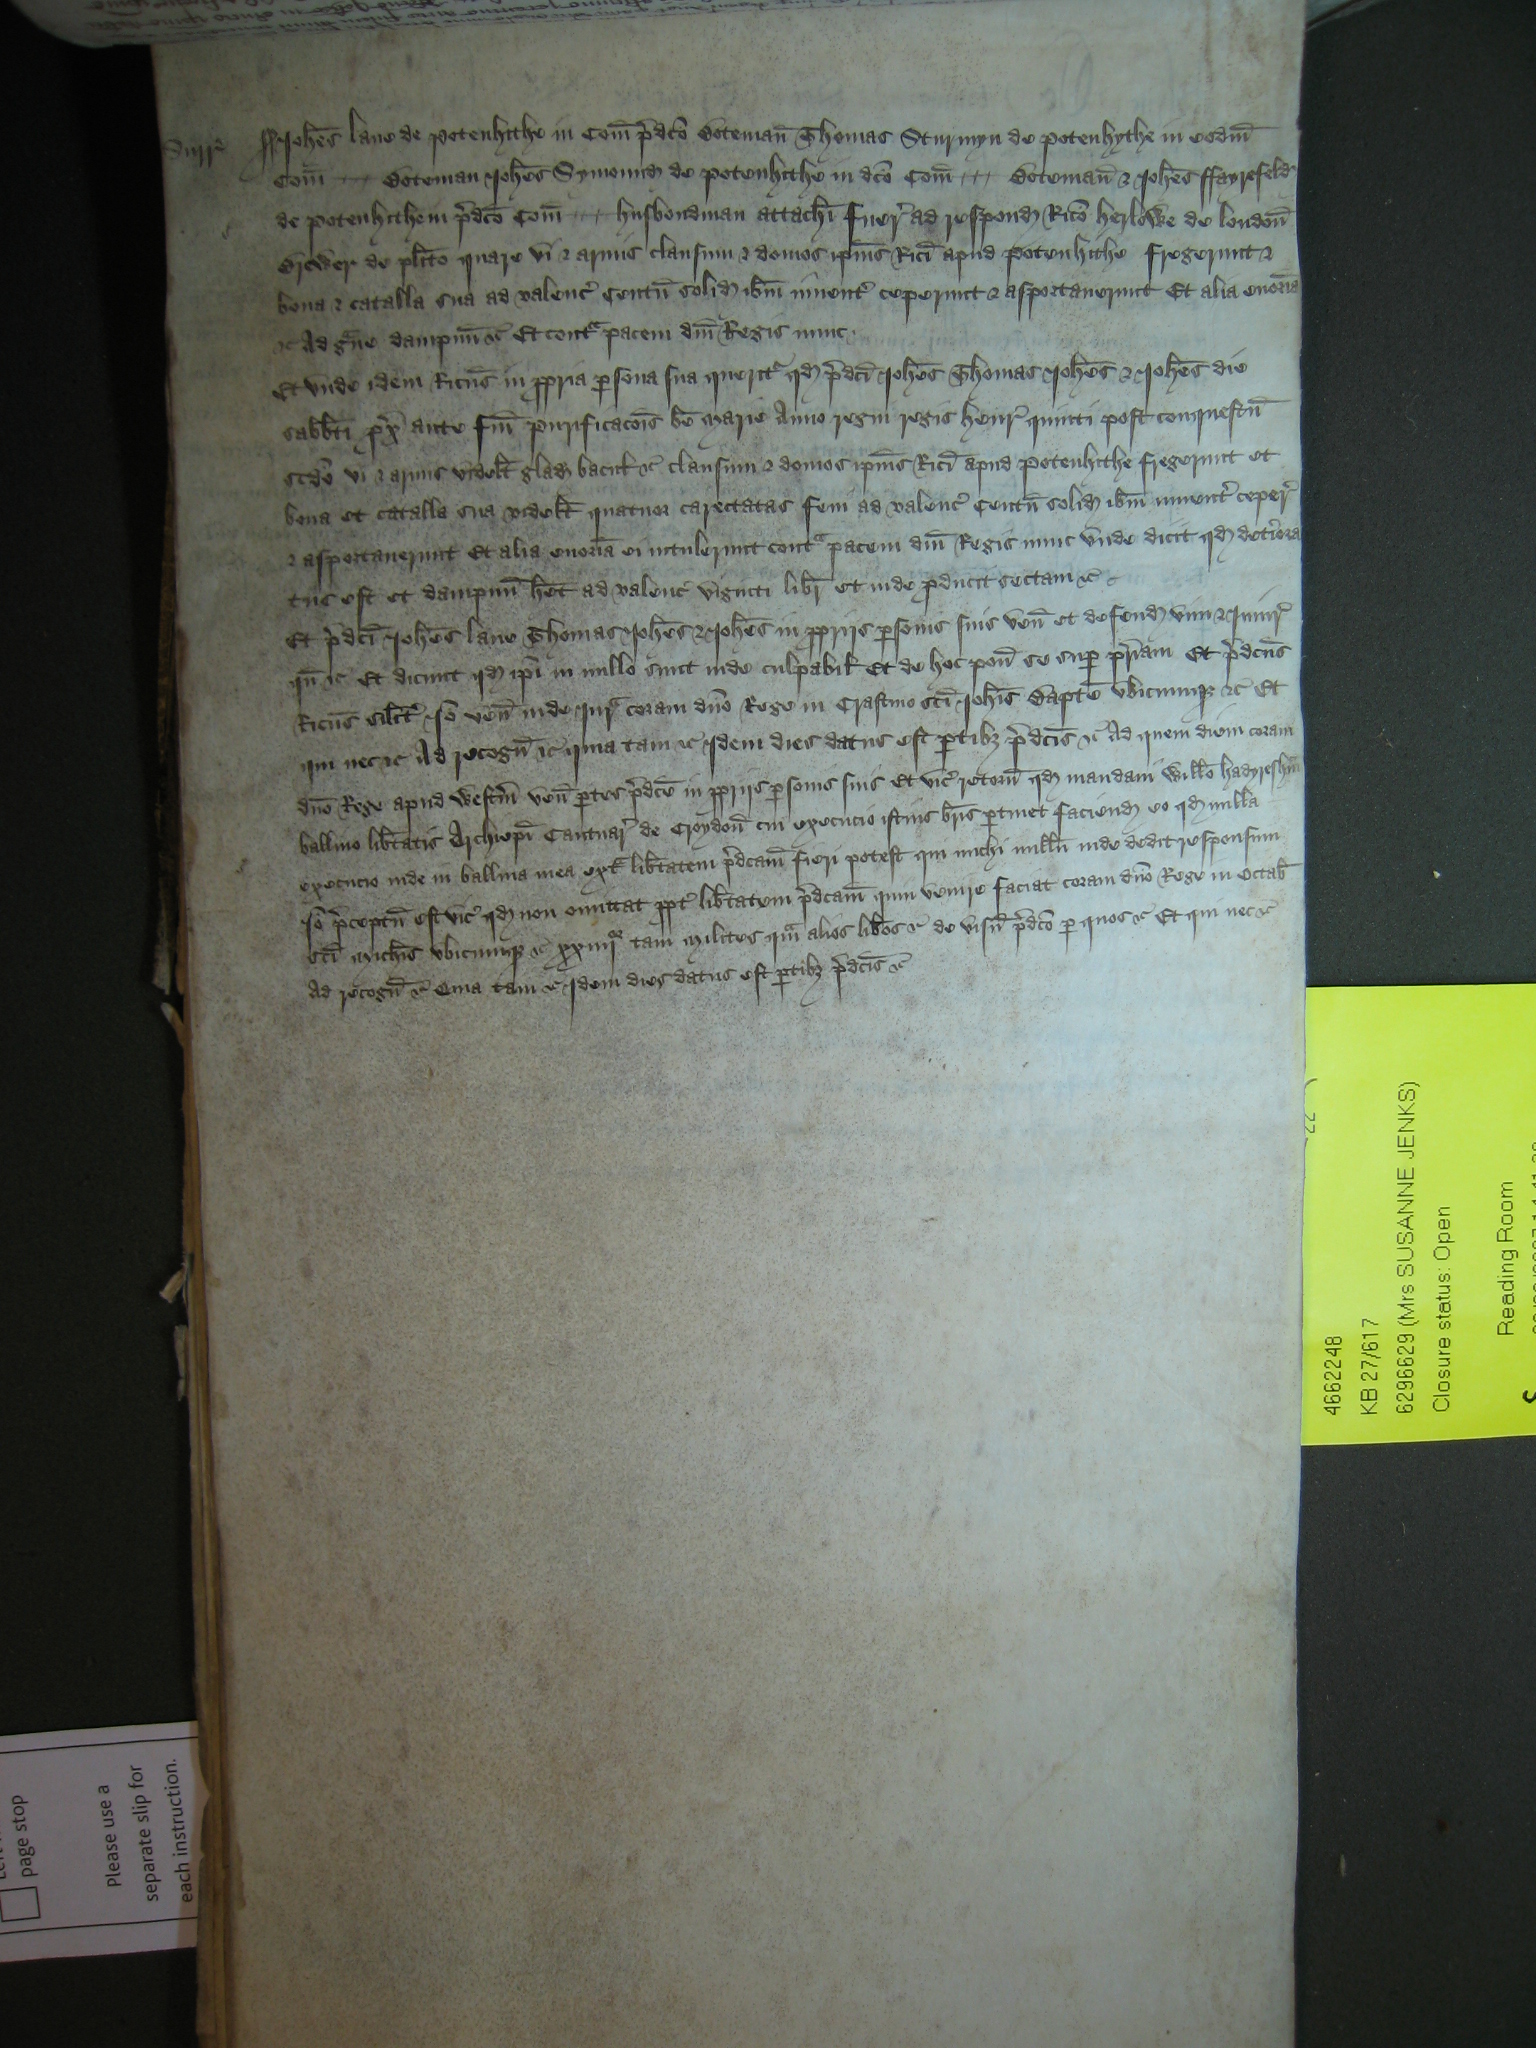 Surr̃ ff Joh̃es lane de potenhithe in Com̃ p̃dc̃o Boteman̄ Thomas Sturmyn de potenhythe in eodm̃
Com̃ --- Boteman Joh̃es Symond de potenhithe in dc̃o Com̃ --- Boteman̄ & Joh̃es ffayrefeld
de potenhithe in p̃dc̃o Com̃ --- husbondman attach̃i fuer̃ ad respond Ric̃o herlowe de london̄
Brewer de pl̃ito quare vi & armis clausum & domos ip̃ius Ric̃i apud potenhithe fregerunt &
bona & catalla sua ad valenc̃ Centũ solid ib̃m inuent̃ ceperunt & asportauerunt Et alia enormia
&c Ad g̃ue dampnũ &c Et contᵃ pacem dñi Regis nunc
Et vnde idem Ric̃us in ppria psona sua queritᵉ qd p̃dc̃i Joh̃es Thomas Joh̃es & Joh̃es die
sabb̃ti px̃ ante fm̃ purificac̃ois be marie Anno regni regis henr̃ quinti post conquestũ
sc̃do vi & armis videlt̃ glad bacul̃ &c clausum & domos ip̃ius Ric̃i apud potenhithe fregerunt et
bona et catalla sua videlt̃ quatuor carectatas feni ad valenc̃ Centũ solid ib̃m inuent̃ ceper̃
& asportauerunt Et alia enormia ei intulerunt contᵃ pacem dñi Regis nunc vnde dicit qd det̃iora
tus est et dampnũ h̃et ad valenc̃ viginti libr̃ et inde pducit sectam &c
Et p̃dc̃i Joh̃es lane Thomas Joh̃es & Joh̃es in ppriis psonis suis ven̄ et defend vim & iniur̃
qñ &c Et dicunt qd ip̃i in nullo sunt inde culpabil̃ Et de hoc pon̄ se sup pr̃iam Et p̃dc̃us
Ric̃us silitᵉ Jõ ven̄ inde Jurᵃ coram dño Rege in Crastino sc̃i Joh̃is Bapt̃e vbicumq &c Et
qui nec &c Ad recogn̄ &c quia tam &c Idem dies datus est ptib p̃dc̃is &c Ad quem diem coram
dño Rege apud westm̃ ven̄ ptes p̃dc̃e in ppriis psonis suis Et vic̃ retorn̄ qd mandaui Will̃o hadyresh̃m
balliuo lib̃tatis Archiep̃i Cantuar̃ de Croydon̄ cui execucio istius br̃is ptinet faciend eo qd nulla
execucio inde in balliua mea ext̃ lib̃tatem p̃dc̃am fieri potest qui michi null̃m inde dedit responsum
Jõ p̃ceptũ est vic̃ qd non omittat ppt̃ lib̃tatem p̃dc̃am quin venire faciat coram dño Rege in Octab̃
sc̃i Mich̃is vbicumq &c xxiiij tam milites qᵃm alios lib̃os &c de visñ p̃dc̃o p quos &c Et qui nec &c
Ad recogn̄ &c Quia tam &c Idem dies datus est ptib p̃dc̃is &c
4662248
KB 27/617
6296629 (Mrs SUSANNE JENKS)
Closure status: Open
Reading Room
page stop
Please use a
separate slip for
each instruction.